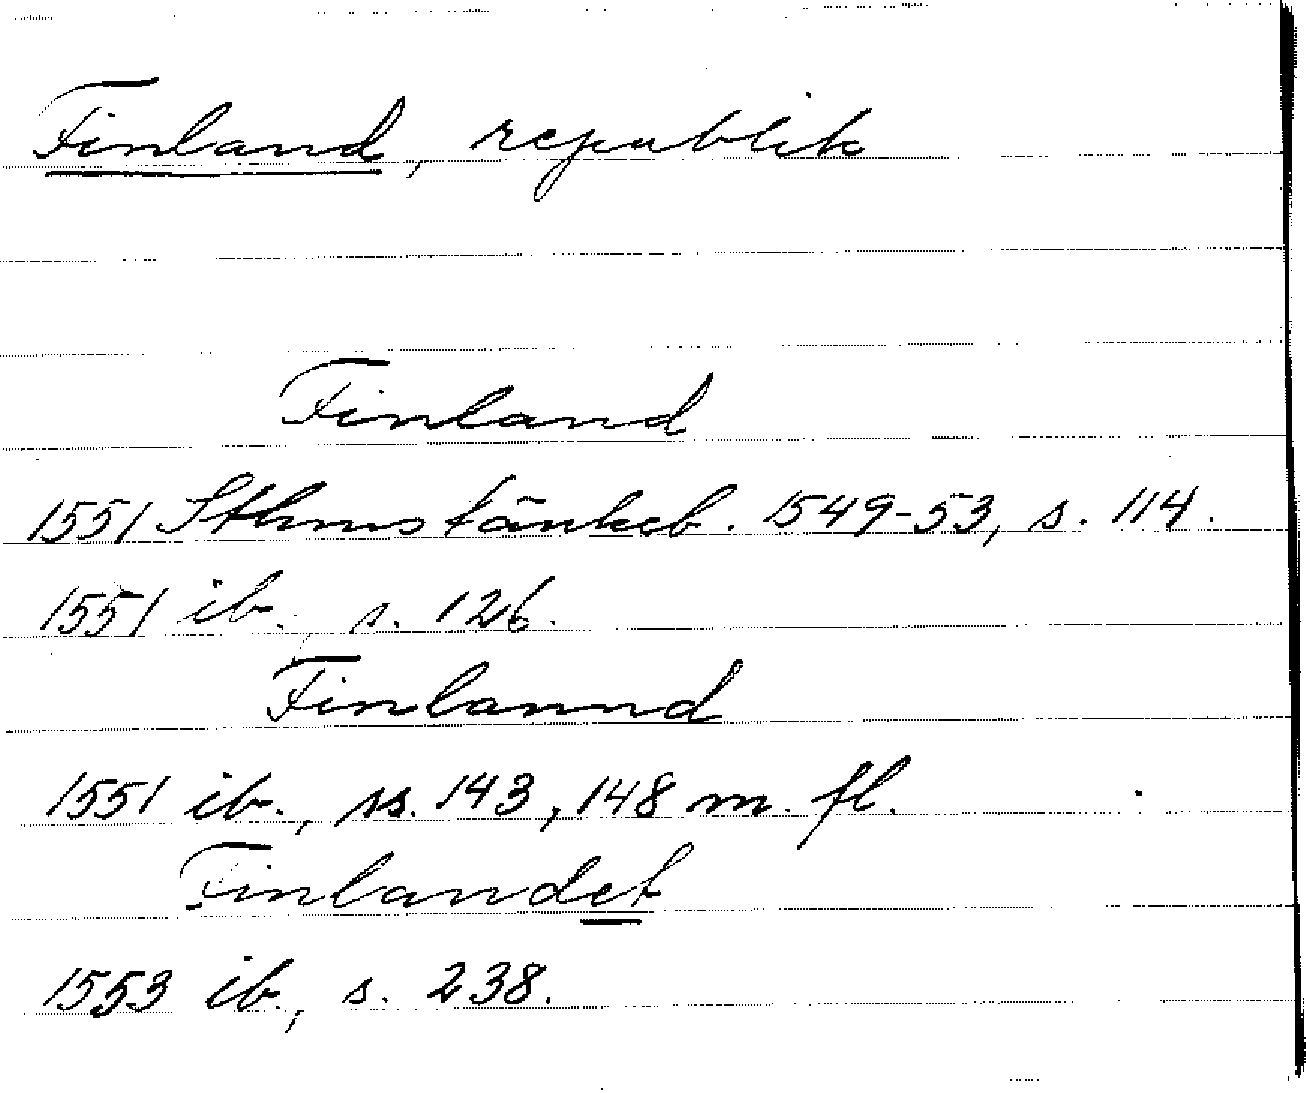 Finland, republik
Finland
1551 Sthms tänkeb. 1549-53, s. 114.
1551 ib., s. 126.
Finlannd
1551 ib., ss. 143, 148 m. fl.
Finlandet
1553 ib., s. 238.